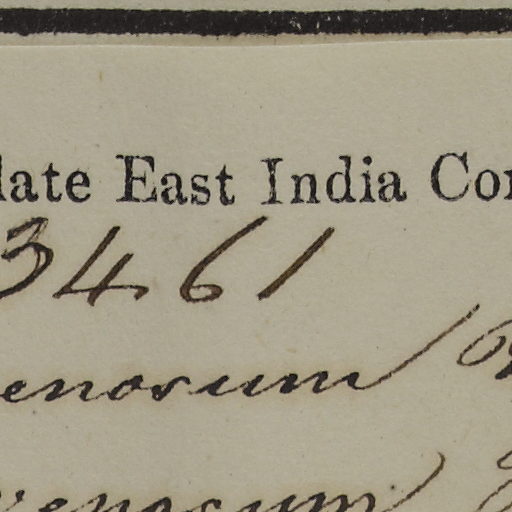 late East India Co
3461
enosum
venosum